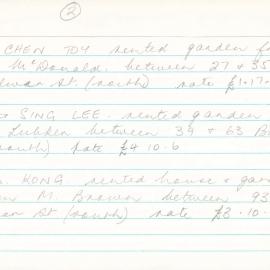 2
CHEN TOY rented garden f
McDonald. between 27 & 35
St. (north) rate £1.17.
SING LEE. rented garden
Lubden between 39 & 63 B
rate £4 10.6
KONG rented house & gar
M. Brown between 93
St (south) rate £3.10.